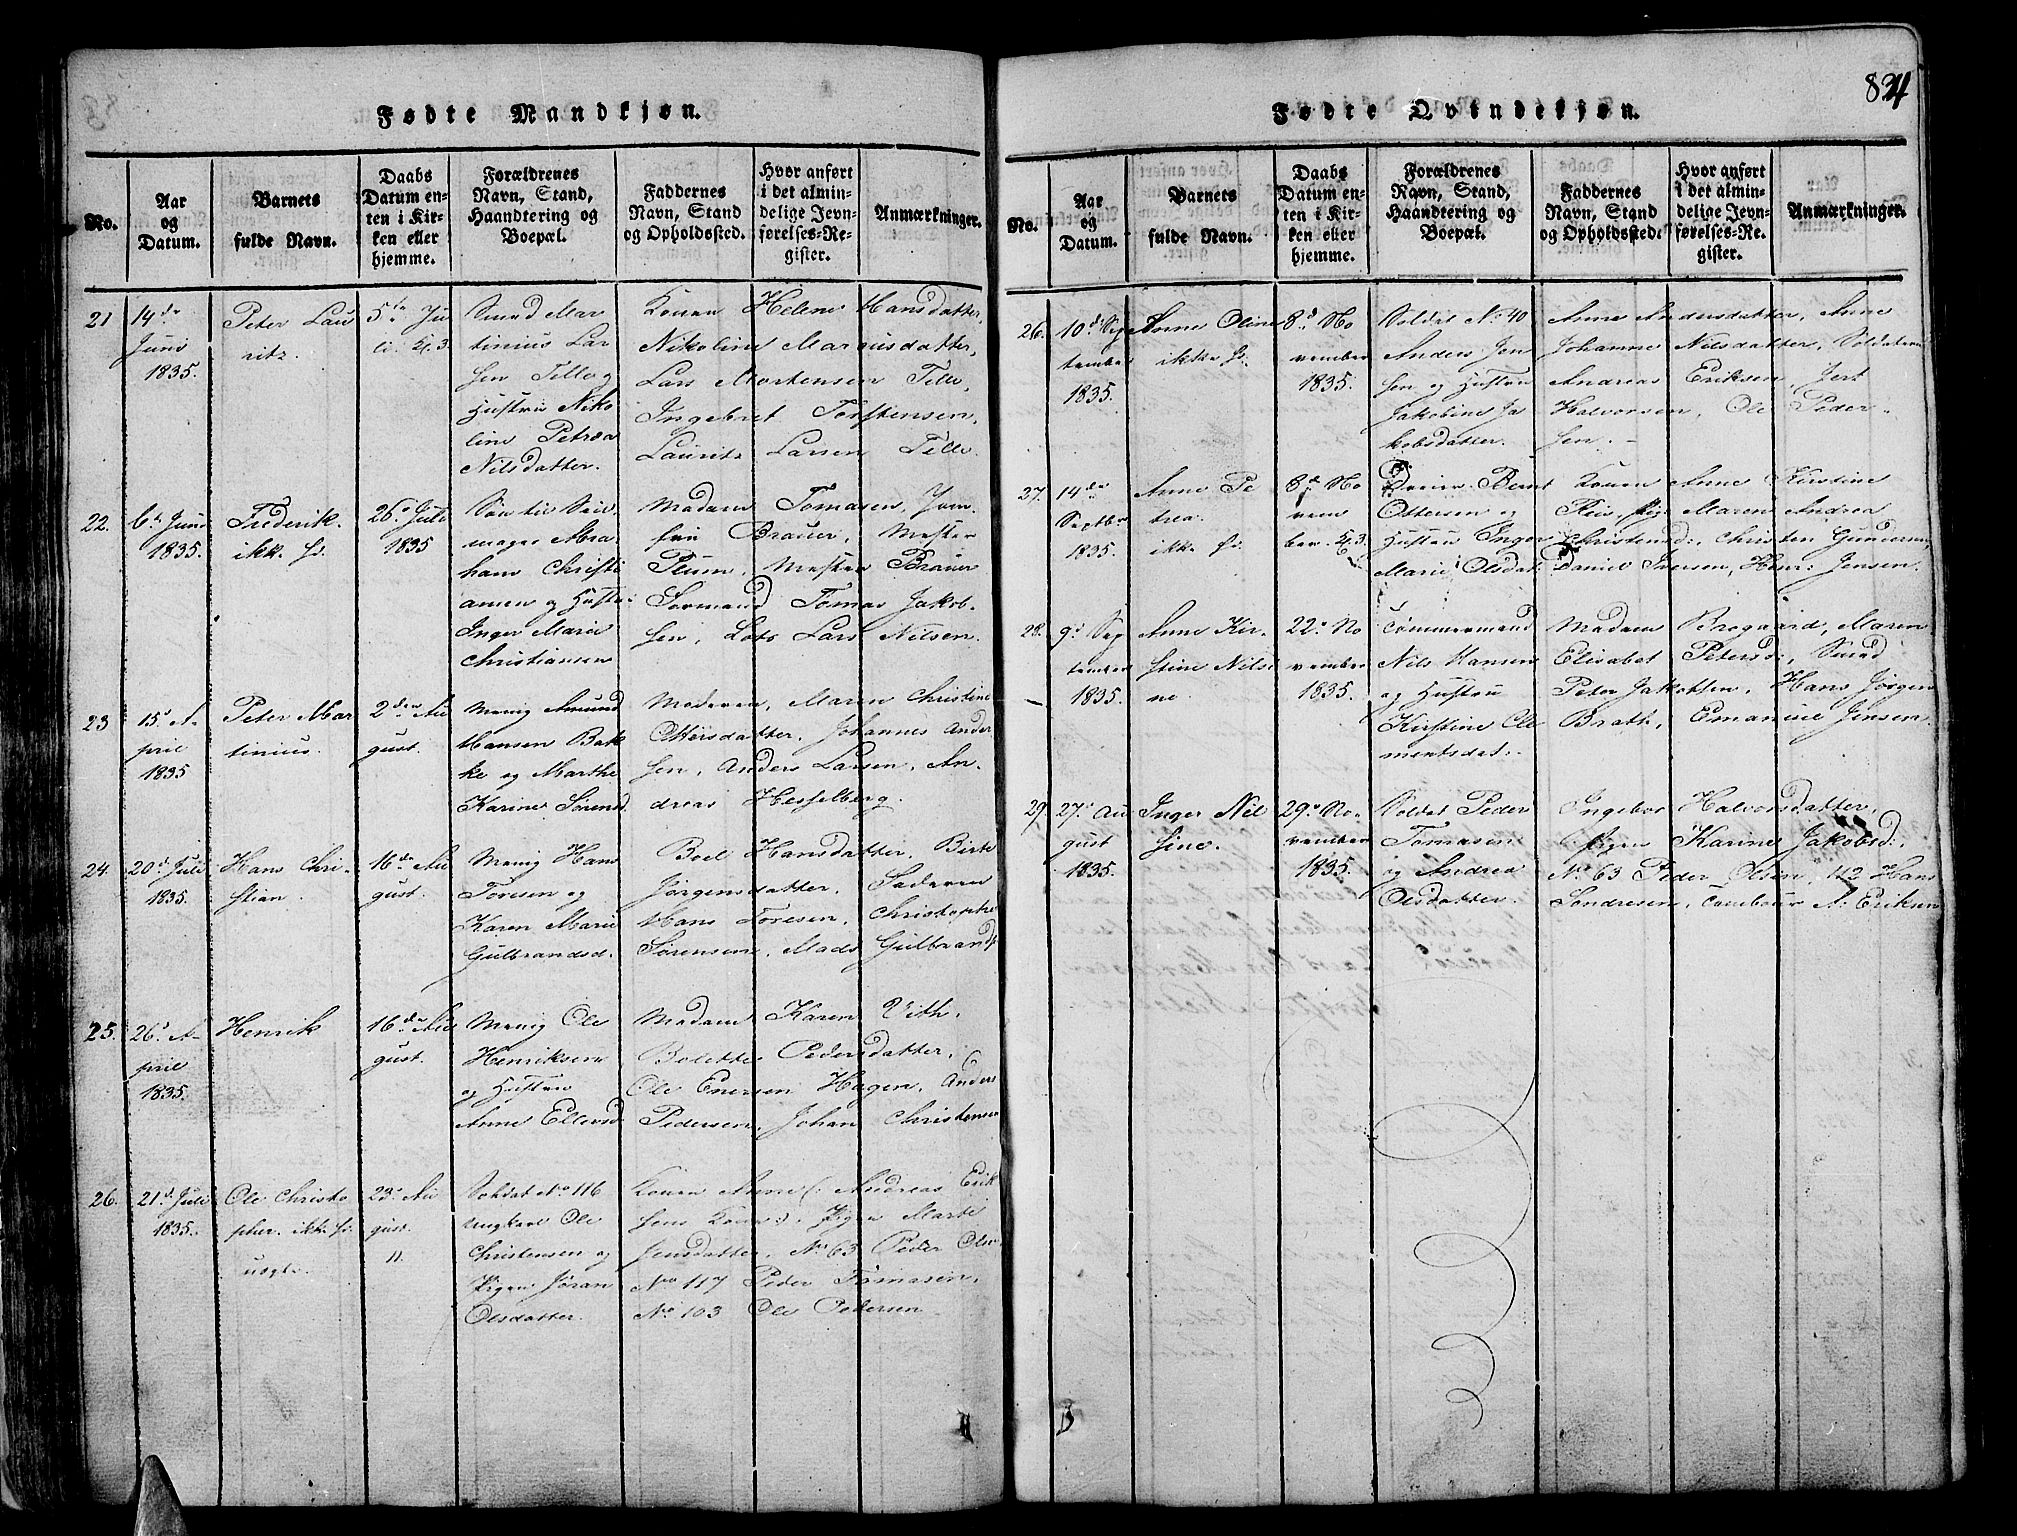 824
Fødte Mandkjøn.
No.
Aar
og
Datum.
Barnets
fulde Navn.
Daabs
Datum en-
ten i Kir-
ken eller
hjemme.
Forældrenes
Navn, Stand,
Haandtering og
Boepæl.
Faddernes
Navn, Stand
og Opholdssted.
Hvor anført
i det almin-
delige Jevn-
førelses-Re-
gister.
Anmærkninger.
21
14de
Juni
1835.
Peter Lau
ritz.
5te Ju
li.
Smed Mar
tinius Lar
sen Tille og
Hustru Niko
line Petrea
Nilsdatter.
Konen Helene Hansdatter,
Nikoline Mariusdatter,
Lars Mortensen Tille,
Ingebret Torstensen,
Laurits Larsen Tille.
22.
6. Juni
1835.
Frederik.
ikk.
26. Juli
1835
Søn til
mager Abra
ham Christi
ansen og Hustru
Inger Marie
Christiansen
Madam Tomasen, Jom-
fru Brauer, Mester
Plum, Mester Brauer
Sørmand Tomas Jakob-
sen, Lots Lars Nilsen.
23
15d A-
pril
1835
Peter Mar
tinius.
2den Au
gust.
Menig Amund
Hansen Bak
ke og Marthe
Karine Sørensd
Madamen, Maren Christine
Ottersdatter, Johannes Ander
sen, Anders Larsen, An-
dreas Hesselberg.
24.
20d. Juli
1835.
Hans Chri-
stian.
16de Au
gust.
Menig Hans
Toresen og
Karen Marie
Gulbrandsd.
Boel Hansdatter, Birte
Jørgensdatter,
Hans Toresen, Christopher
Sørensen, Mads Gulbrands
25.
26d A-
pril
1835.
Henrik
16de Au
gust.
Menig Ole
Henriksen
og Hustru
Anne Ellevsd
Madame Karen Vith,
Bolette Pedersdatter,
Ole Enersen Hagen, Anders
Pedersen, Johan Christensen
26.
21d. Juli
1835.
Ole Christo
pher. ikk.
uægte.
23. Au
gust.
11.
Soldat No 116
ungkarl Ole
Christensen og
Pigen Jøran
Olsdatter.
Konen Anne (: Andreas Erik
sens Kone:), Pigen Marte
Jensdatter, No 63 Peder Olsen
No 117 Peder Tomasen,
No 103 Ole Pedersen
Fødte Qvindekjøn.
No.
Aar
og
Datum.
Barnets
fulde Navn.
Daabs
Datum en-
ten i Kir-
ken eller
hjemme.
Forældrenes
Navn, Stand,
Haandtering og
Boepæl.
Faddernes
Navn, Stand
og Opholdssted.
Hvor anført
i det almin-
delige Jevn-
førelses-Re-
gister.
Anmærkninger.
26.
10d Sep
tember
1835.
Anne Oline
ikke
8d No
vember
1835.
Soldat No 40
Anders Jon
sen og Hustru
Jakobine Ja
kobsdatter.
Anne Andersdatter, Anne
Johanne Nilsdatter, Soldaterne
Andreas Eriksen, Jert
Halvorsen, Ole Peder-
sen.
27.
14de
Septbr
1835.
Anne Pe
trea.
ikke
8d No
vem
ber.
Dreier Bernt
Ottersen og
Hustru Inger
Marie Olsdat.
Konen Anne Kirstine
Maren Andrea
Christensd:, Christen Gundersen,
Daniel Iversen, Hans Jensen.
28.
9d Sep
tember
1835.
Anne Kir-
stine Nilsi
ne.
22. No
vember
1835.
Tømmermand
Nils Hansen
og Hustru
Kirstine Cle
mentsdat:
Madam Bregaard, Maren
Elisabet Petersd:, Smed
Peter Jakobsen, Hans Jørgen
Brath, Emanuel Jensen.
29.
27. Au
gust
1835.
Inger Nil
sine.
29. No-
vember
1835.
Soldat Peder
Tomasen
og Andrea
Olsdatter.
Ingebor Halvorsdatter,
Pigen Karine Jakobsd:
No 63 Peder Olsen, 112 Hans
Sondresen, Tambour A. Eriksen